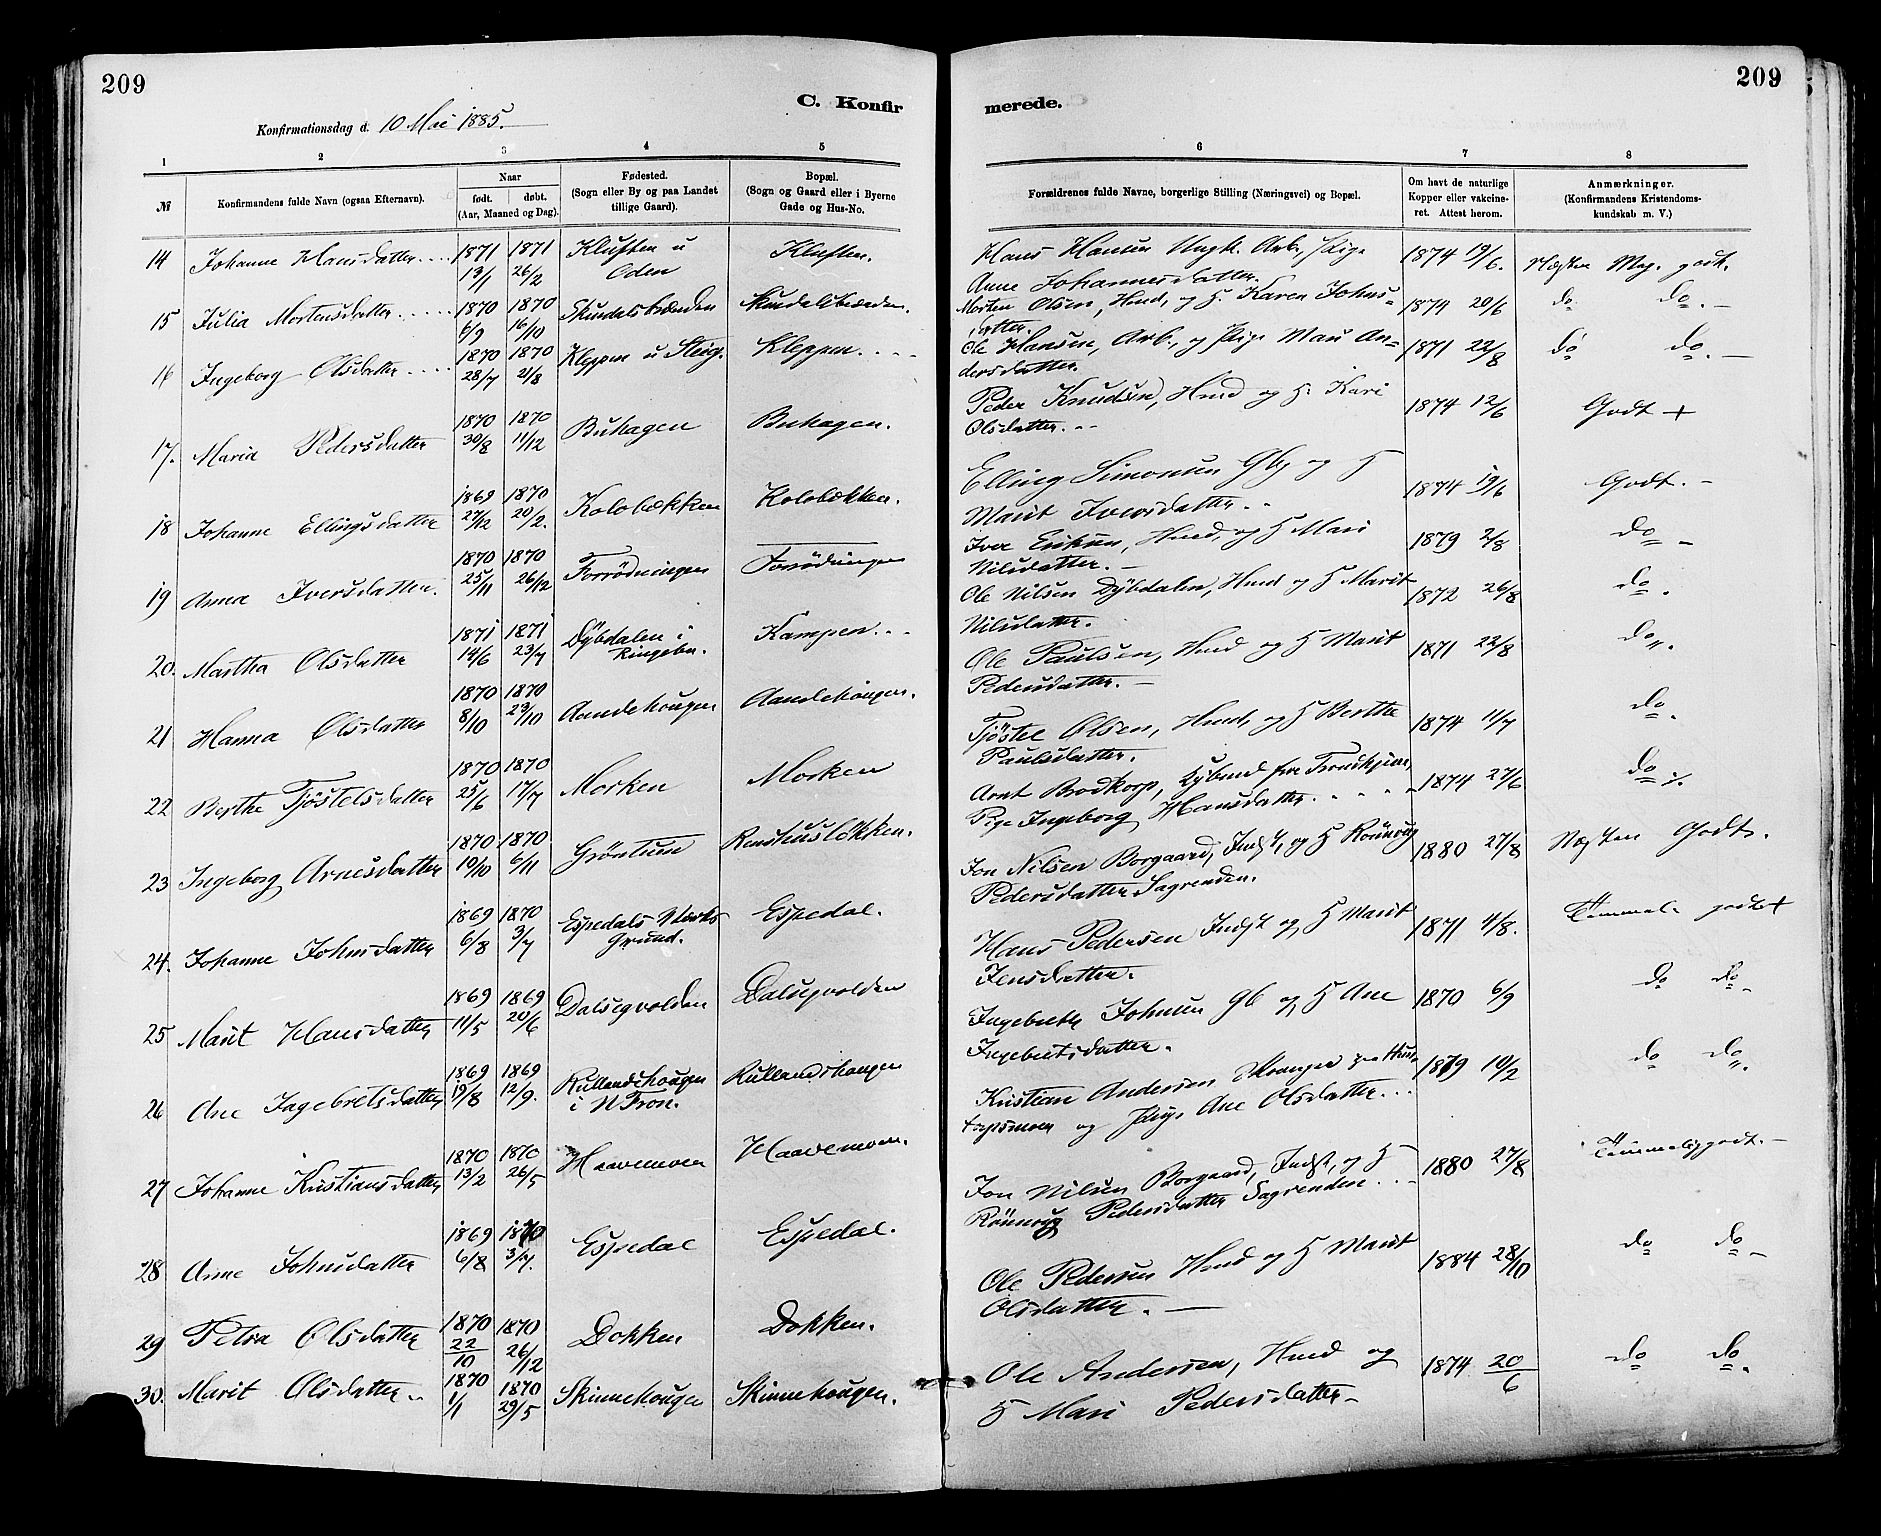 209
209
C. Konfir
merede.
Konfirmationsdag d. 10 Mai 1885.
1 2 3 4 5 6 7 8
№
Konfirmandens fulde Navn (ogsaa Efternavn).
Naar
født. døbt.
(Aar, Maaned og Dag).
Fødested.
(Sogn eller By og paa Landet
tillige Gaard).
Bopæl.
(Sogn og Gaard eller i Byerne
Gade og Hus-No.
Forældrenes fulde Navne, borgerlige Stilling (Næringsvei) og Bopæl.
Om havt de naturlige
Kopper eller vakcine-
ret. Attest herom.
Anmærkninger.
(Konfirmandens Kristendoms-
kundskab m. V.)
14 Johanne Hansdatter 1871 13/1 1871 26/2 Kluften u Oden Kluften.
Hans Hansen Ungk. Arb., Pige
Anne Johannesdatter. 1874 19/6. Næsten Meg. godt.
15 Julia Mortensdatter 1870 6/9 1870 16/10 Skindalsbrænden Skindalsbræden.
Morten Olsen, Hmd, og H. Karen Johns-
datter. 1874 20/6 do do. -
16 Ingeborg Olsdatter 1870 28/7 1870 21/8 Kleppen u Steig. Kleppen.
Ole Hansen, Arb., og Pige Mari An-
dersdatter. 1871 22/8 do do. -
17. Maria Pedersdatter 1870 30/8 1870 11/12 Buhagen Buhagen.
Peder Knudsen, Hmd og H. Kari
Olsdatter. 1874 12/6 Godt +
18 Johanne Ellingsdatter 1869 27/12 1870 20/2. Kolobækken Kolobekken.
Elling Simonsen Gbj og H
Marit Iversdatter. 1874 19/6 Godt. -
19 Anna Iversdatter. 1870 25/11 1870 26/12 Forrødningen Forrødningen
Iver Eriksen, Hmd, og H Mari
Nilsdatter. - 1879 2/8 do -
20. Martha Olsdatter 1871 14/6 1871 23/7 Dybdalen i Ringebu. Kampen.
Ole Nilsen Dybdalen, Hmd og H Marit
Nilsdatter. 1872 26/8 do.
21 Hanna Olsdatter 1870 8/10 1870 23/10 Aandehougen Aandehougen.
Ole Paulsen, Hmd og H Marit
Pedersdatter. - 1871 22/8 do.
22 Berthe Tjöstelsdatter 1870 25/6 1870 17/7 Morken Morken
Tjöstel Olsen, Hmd, og H Berthe
Paulsdatter. 1874 11/7 do.
23 Ingeborg Arnesdatter 1870 19/10 1870. 6/11 Gröntuen Renshusløkken.
Arnt Brodkorp, fra Trondhjem,
Pige Ingeborg Hansdatter. 1874 27/6 do
24. Johanne Johnsdatter 1869 6/8 1870 3/7 Espedals Værks Grund. Espedal.
Jon Nilsen Borgaard, Indst, og H Rönnoug
Pedersdatter Sagrenden. 1880 27/8 Næsten Godt.
25 Marit Hansdatter 1869 11/5 1869 20/6 Dalsegvolden Dalsegvolden
Hans Pedersen Indst og H Marit
Jensdatter. 1871 4/8. Temmel. godt+
26 Ane Ingebretsdatter 1869 19/8 1869 12/9. Rullandshougen i N Fron. Rullandshougen
Ingebreth Johnsen Gb og H Ane
Ingebretsdatter. 1870 6/9 do do. -
27 Johanne Kristiansdatter 1870 13/2 1870 26/5 Haavemoen Haavemoen.
Kristian Andersen
og Pige Ane Olsdatter. 1879 10/2 do do.
28 Anne Johnsdatter 1869 6/8 1870 3/7. Espedal Espedal.
Jon Nilsen Borgaard, Indst, og H
Rönnoug Pedersdatter Sagrenden. 1880 27/8 Temmelig godt. -
29 Petra Olsdatter 1870 22/10 1870 26/12 Dokken Dokken.
Ole Pedersen Hmd og H Marit
Olsdatter. - 1884 28/10 do do -
30. Marit Olsdatter. 1870 1/1 1870 29/5 Skinnehougen Skinnehougen.
Ole Andersen, Hmd og
H Mari Pedersdatter - 1874 20/6 do do.